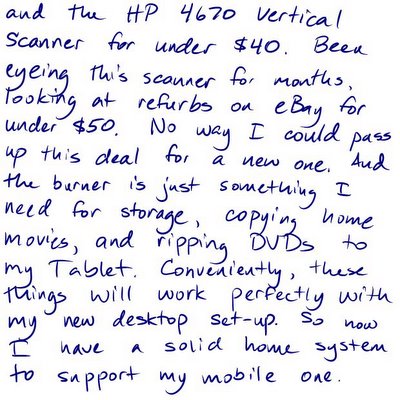 and the HP 4670 Vertical
Scanner for under $40. Been
eyeing this scanner for months,
looking at refurbs on eBay for
under $50. No way I could pass
up this deal for a new one. And
the burner is just something I
need for storage, copying home
movies, and ripping DVDs to
my Tablet. Conveniently, these
things will work perfectly with
my new desktop set-up. So now
I have a solid home system
to support my mobile one.